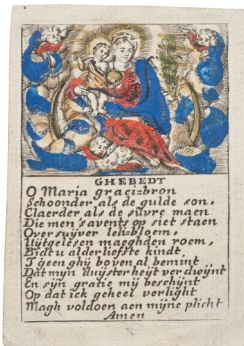 GHEBEDT
O Maria graci-bron
Schoonder als de gulde son.
Claerder als de suvre maen
Die men 's avents op siet staen
Over suyver leli-bloem,
Uijtgelesen maeghden roem,
Bidt u alderliefste kindt,
T geen ghij boven al bemint
Dat mijn duysterheijt verdwijnt
En sijn gratie mij beschijnt
Op dat ick geheel verlight
Magh voldoen aen mijne plicht
Amen